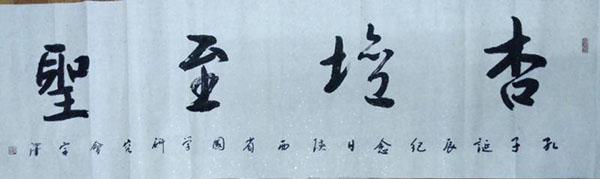 杏壇至聖
孔子誕辰紀念日陝西省國学研究會宗澤